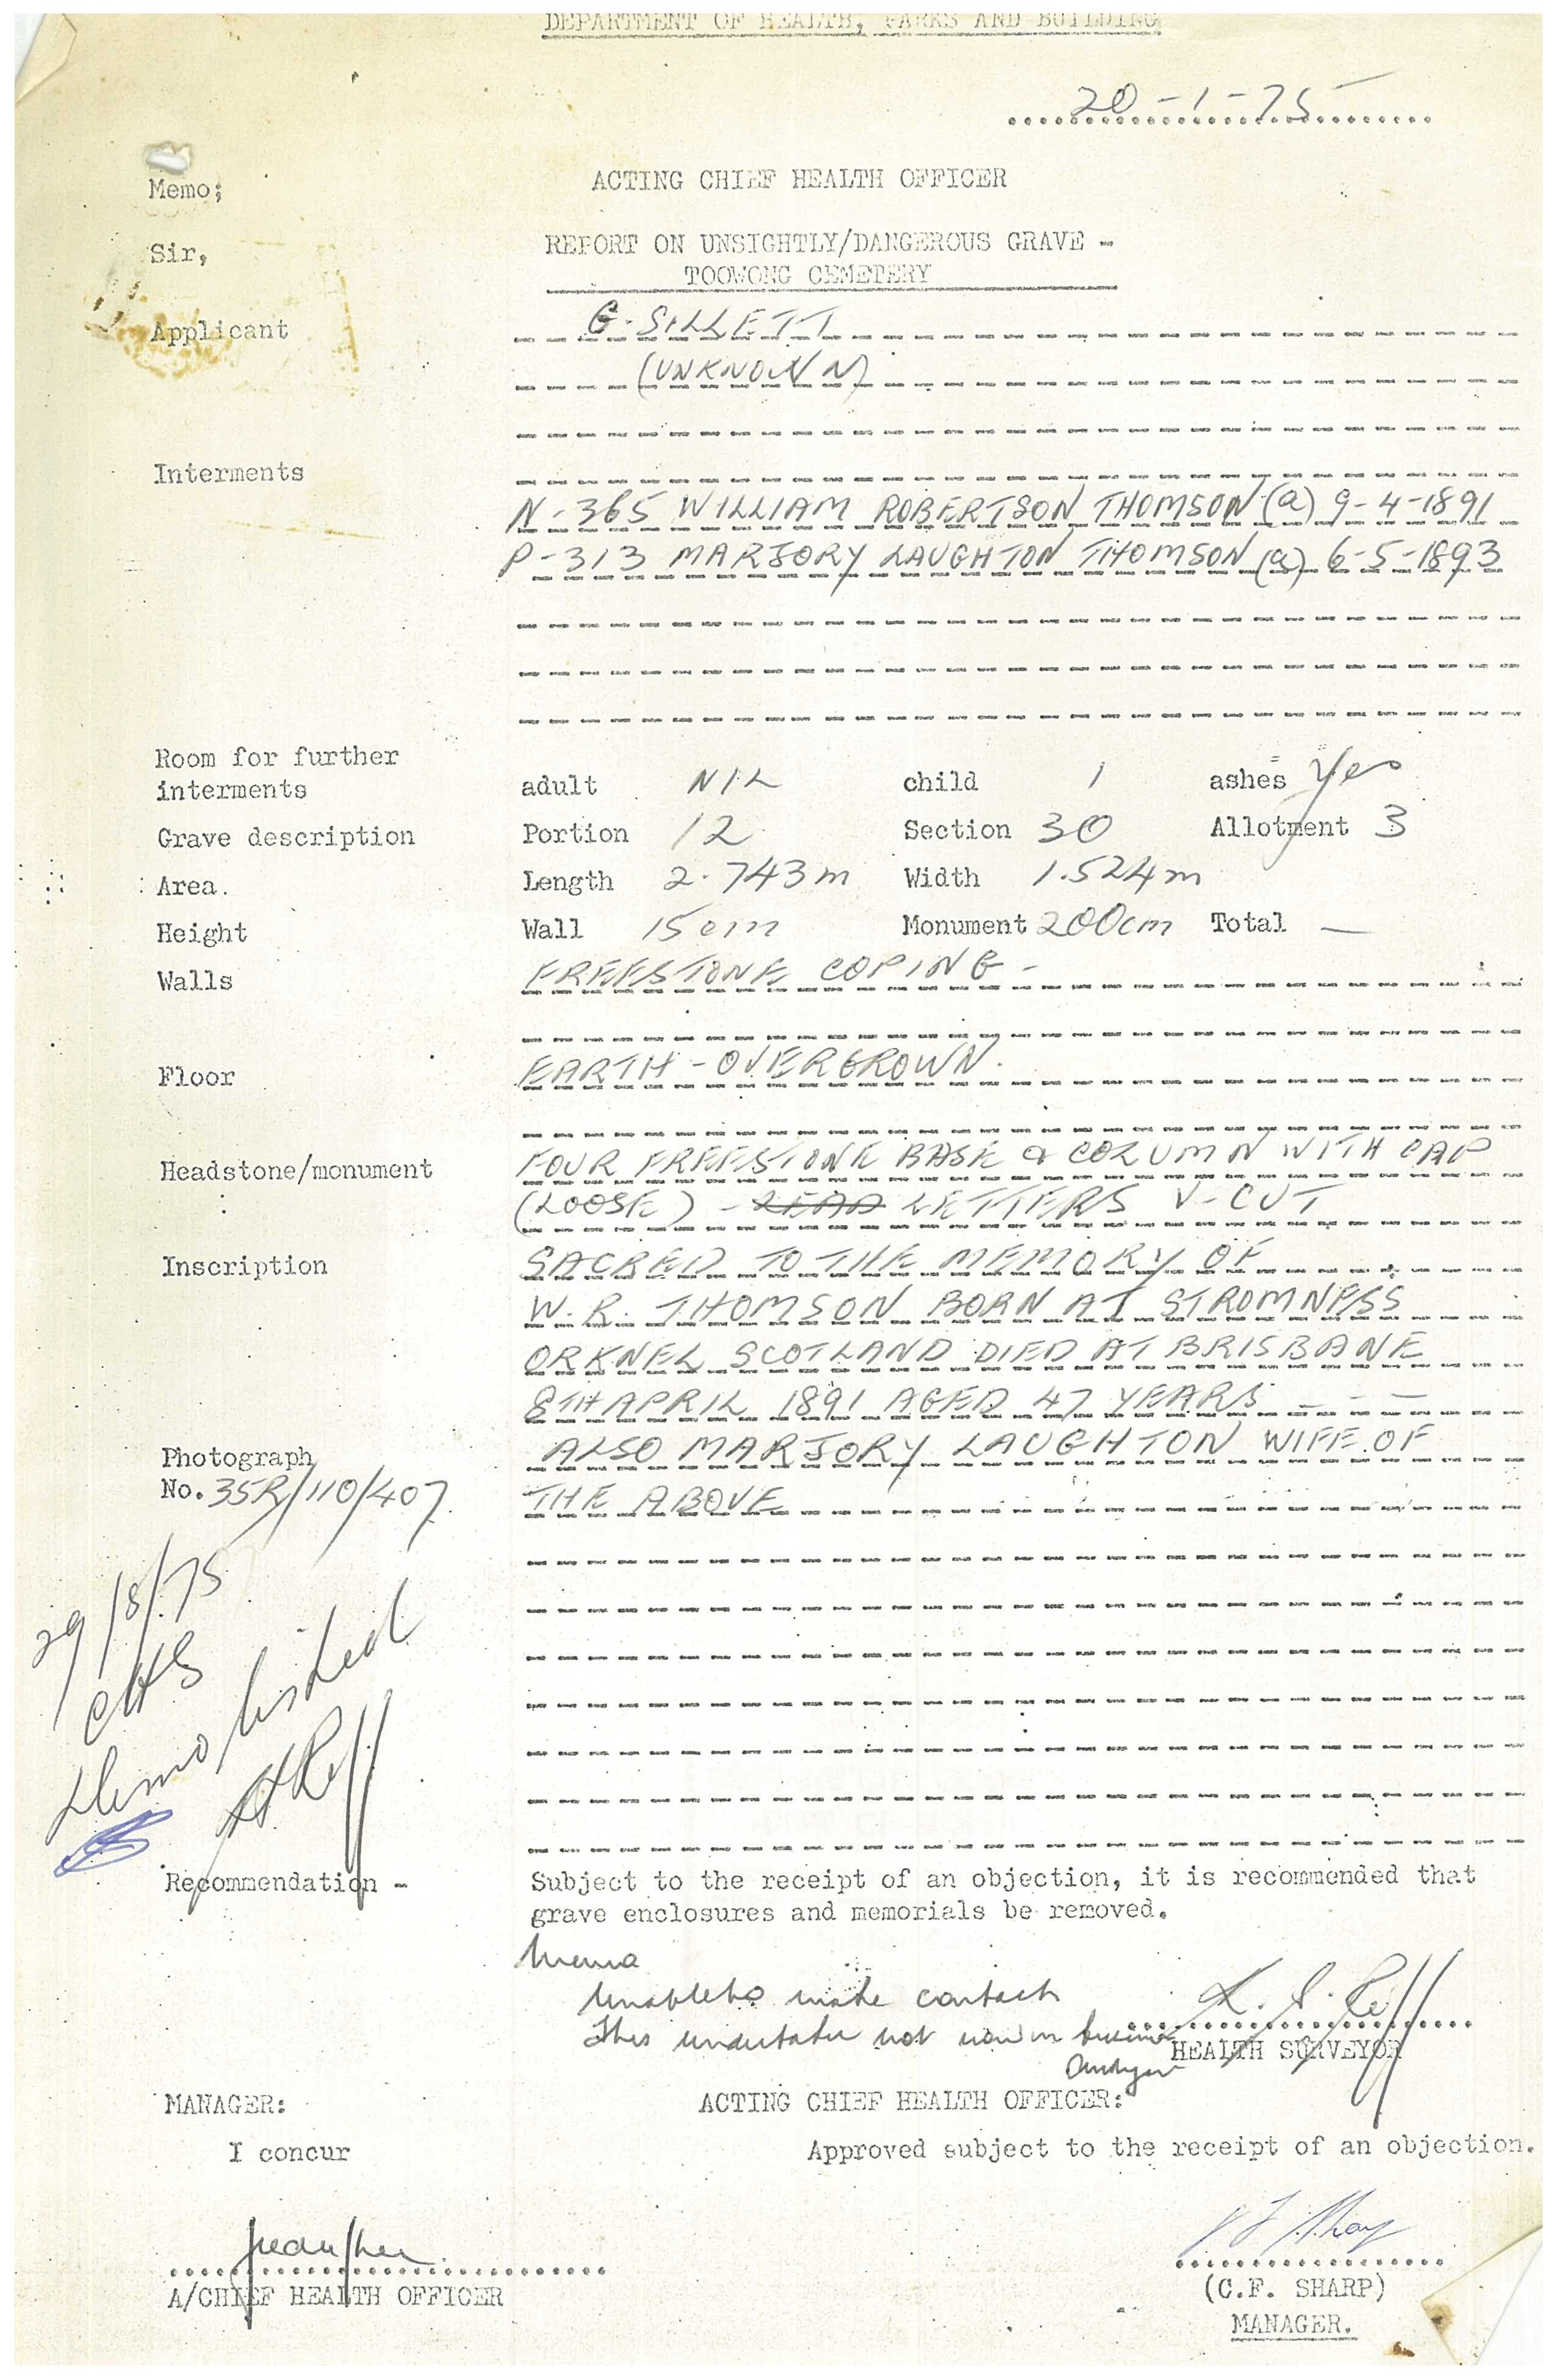 DEPARTMENT OF HEALTH, PARKS AND BUILDING
20-1-75
Memo; ACTING CHIEF HEALTH OFFICER
Sir, REPORT ON UNSIGHTLY/DANGEROUS GRAVE -
TOOWONG CEMETERY
Applicant G. SILLETT
(UNKNOWN)
Interments
N-365 WILLIAM ROBERTSON THOMSON (a) 9-4-1891
P-313 MARJORY LAUGHTON THOMSON (a) 6-5-1893
Room for further
interments adult NIL child 1 ashes Yes
Grave description Portion 12 Section 30 Allotment 3
Area. Length 2.743m Width 1.524m
Height Wall 15cm Monument 200cm Total —
Walls FREESTONE COPING -
Floor EARTH - OVERGROWN.
Headstone/monument FOUR FREESTONE BASE & COLUMN WITH CAP
(LOOSE) - LEAD LETTERS V-CUT
Inscription SACRED TO THE MEMORY OF
W.R. THOMSON BORN AT STROMNESS
ORKNEL SCOTLAND DIED AT BRISBANE
8TH APRIL 1891 AGED 47 YEARS - - -
ALSO MARJORY LAUGHTON WIFE OF
Photograph
No. 35R/110/407 THE ABOVE
29/8/75
CHS
Demolished
Recommendation - Subject to the receipt of an objection, it is recommended that
grave enclosures and memorials be removed.
Memo
Unable to make contact
This undertaker not now in business
HEALTH SURVEYOR
MANAGER: ACTING CHIEF HEALTH OFFICER:
I concur Approved subject to the receipt of an objection.
A/CHIEF HEALTH OFFICER (C.F. SHARP)
MANAGER.